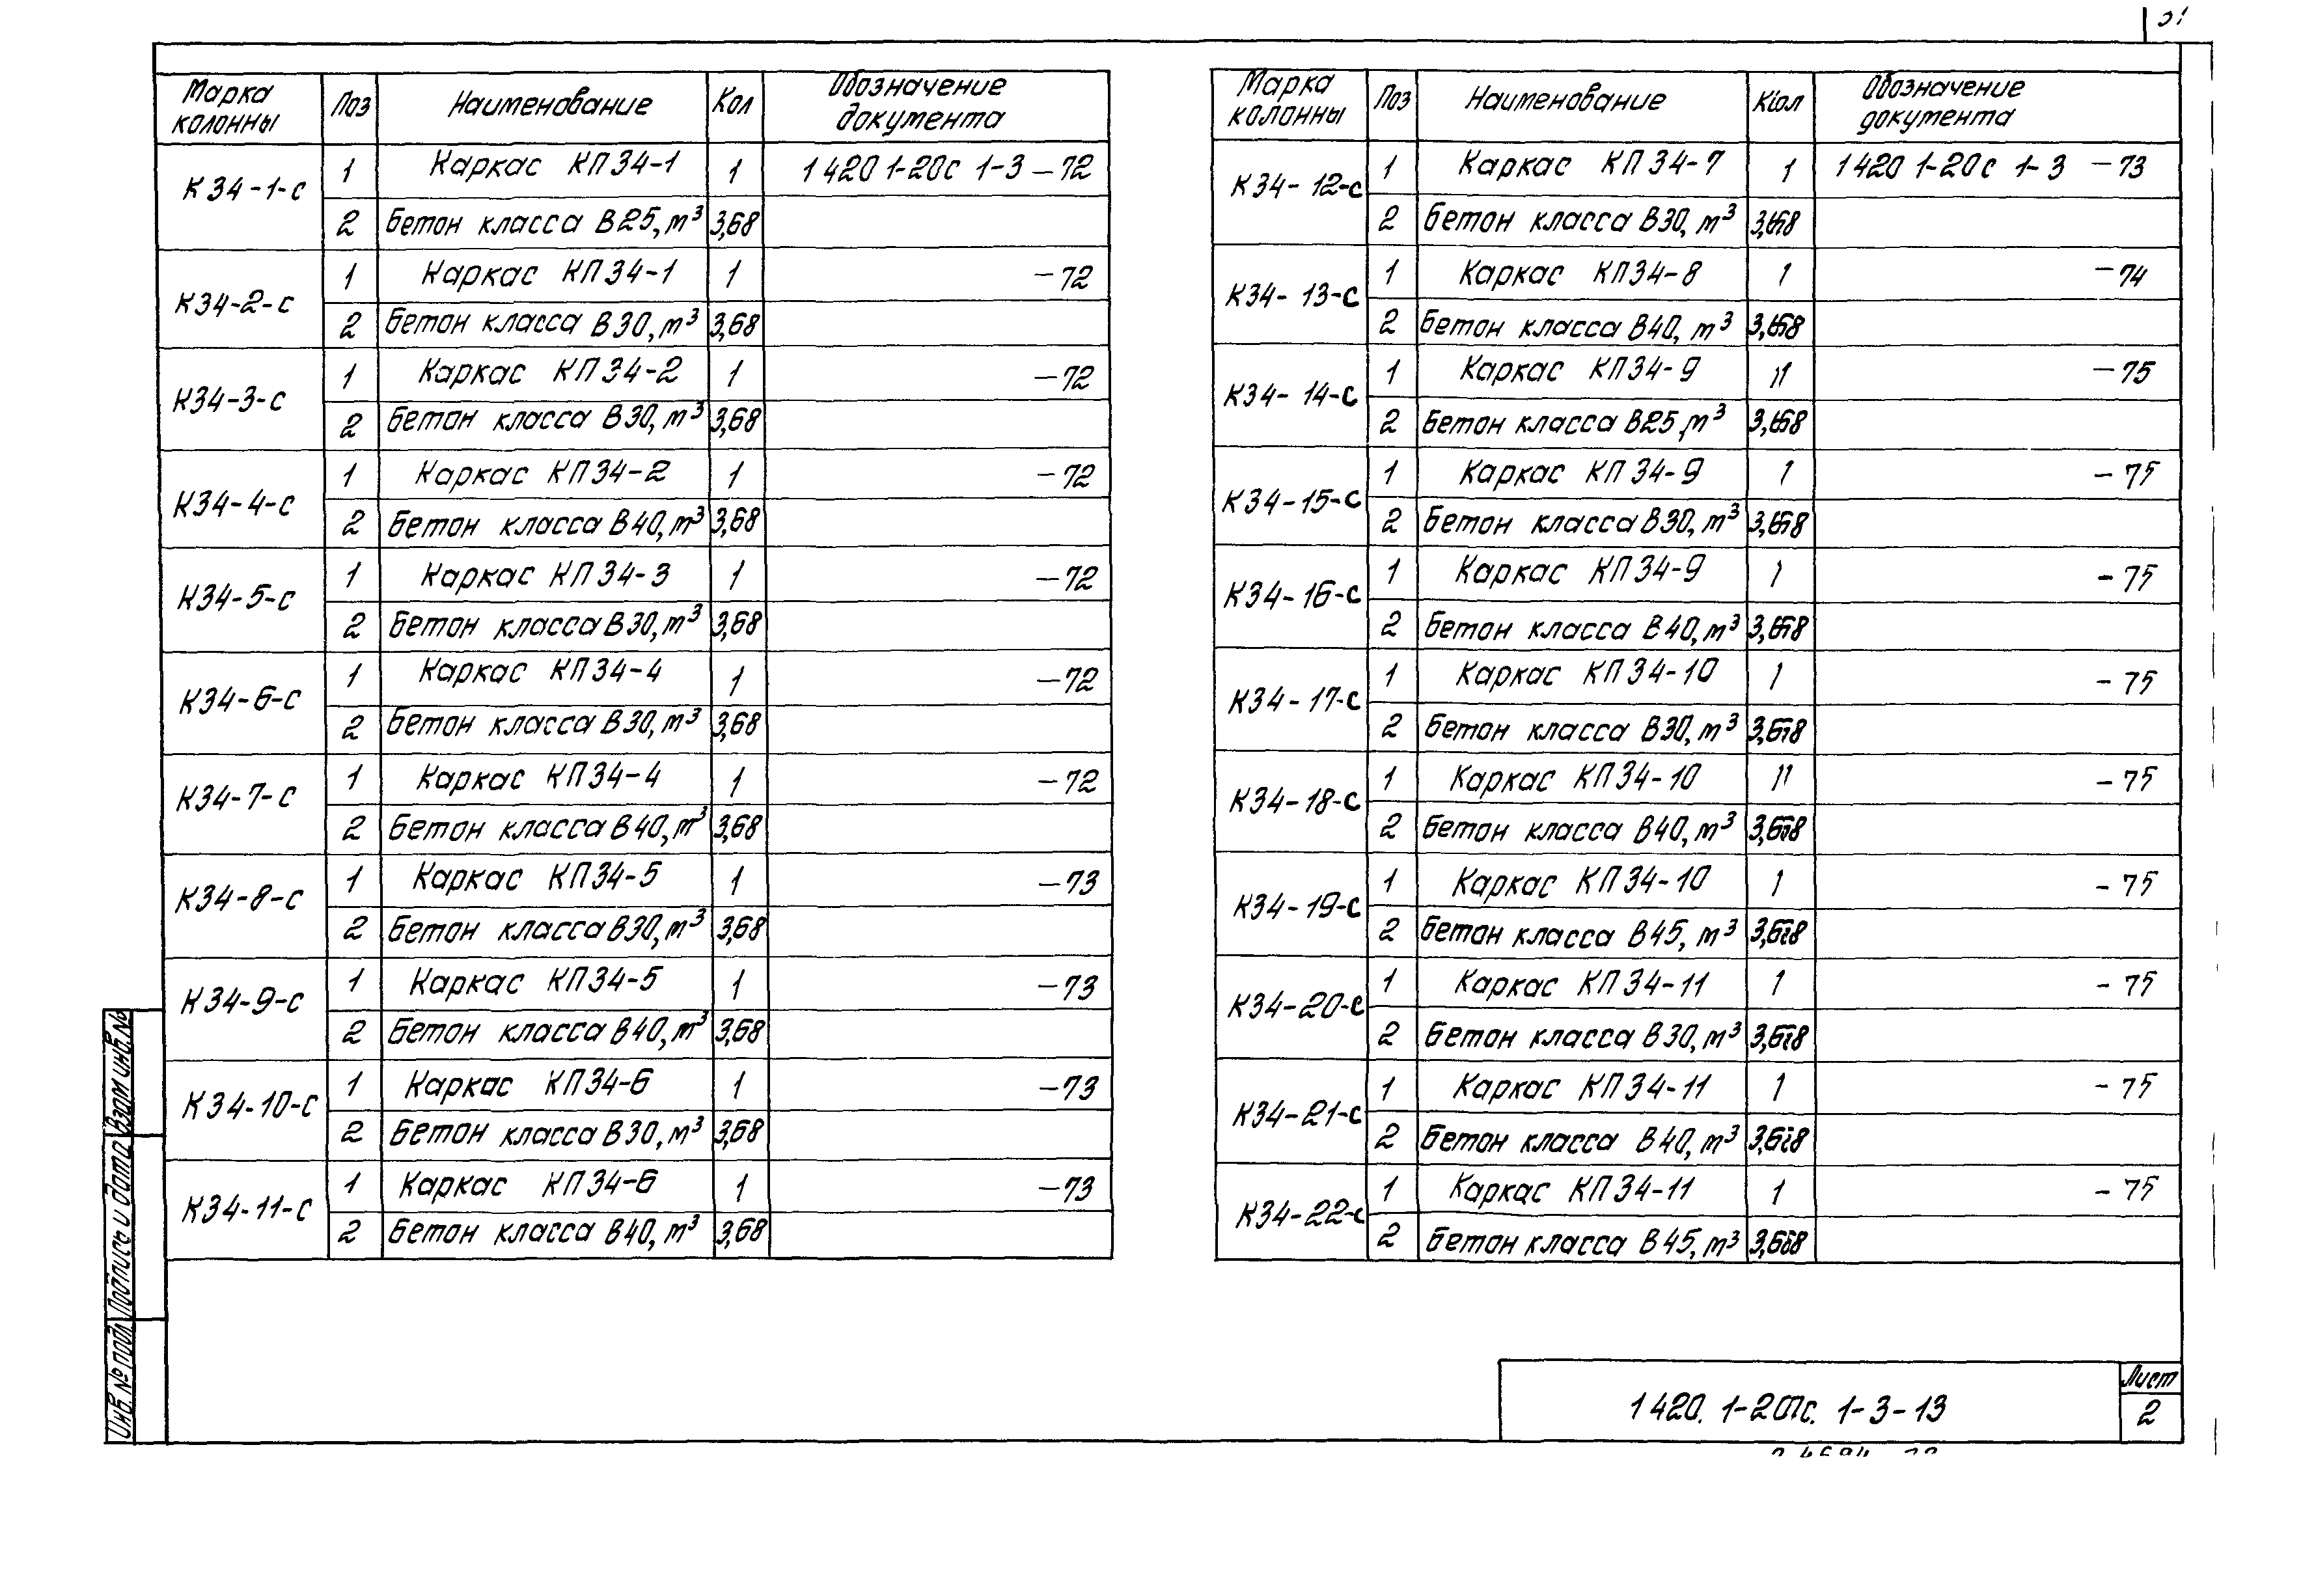 Марка колонны Поз Наименование Кол Обозначение документа
К34-1-с 1 Каркас КП34-1 1 1420 1-20с 1-3 -72
2 Бетон класса В25, м³ 3,68
К34-2-с 1 Каркас КП34-1 1 -72
2 Бетон класса В30, м³ 3,68
К34-3-с 1 Каркас КП34-2 1 -72
2 Бетон класса В30, м³ 3,68
К34-4-с 1 Каркас КП34-2 1 -72
2 Бетон класса В40, м³ 3,68
К34-5-с 1 Каркас КП34-3 1 -72
2 Бетон класса В30, м³ 3,68
К34-6-с 1 Каркас КП34-4 1 -72
2 Бетон класса В30, м³ 3,68
К34-7-с 1 Каркас КП34-4 1 -72
2 Бетон класса В40, м³ 3,68
К34-8-с 1 Каркас КП34-5 1 -73
2 Бетон класса В30, м³ 3,68
К34-9-с 1 Каркас КП34-5 1 -73
2 Бетон класса В40, м³ 3,68
К34-10-с 1 Каркас КП34-6 1 -73
2 Бетон класса В30, м³ 3,68
К34-11-с 1 Каркас КП34-6 1 -73
2 Бетон класса В40, м³ 3,68
Марка колонны Поз Наименование Кол Обозначение документа
К34-12-с 1 Каркас КП34-7 1 1420 1-20с 1-3 -73
2 Бетон класса В30, м³ 3,68
К34-13-с 1 Каркас КП34-8 1 -74
2 Бетон класса В40, м³ 3,68
К34-14-с 1 Каркас КП34-9 1 -75
2 Бетон класса В25, м³ 3,68
К34-15-с 1 Каркас КП34-9 1 -75
2 Бетон класса В30, м³ 3,68
К34-16-с 1 Каркас КП34-9 1 -75
2 Бетон класса В40, м³ 3,68
К34-17-с 1 Каркас КП34-10 1 -75
2 Бетон класса В30, м³ 3,68
К34-18-с 1 Каркас КП34-10 1 -75
2 Бетон класса В40, м³ 3,68
К34-19-с 1 Каркас КП34-10 1 -75
2 Бетон класса В45, м³ 3,68
К34-20-с 1 Каркас КП34-11 1 -75
2 Бетон класса В30, м³ 3,68
К34-21-с 1 Каркас КП34-11 1 -75
2 Бетон класса В40, м³ 3,68
К34-22-с 1 Каркас КП34-11 1 -75
2 Бетон класса В45, м³ 3,68
Инв. № подл. Подпись и дата Взам инв. №
1420. 1-20с. 1-3-13
Лист
2